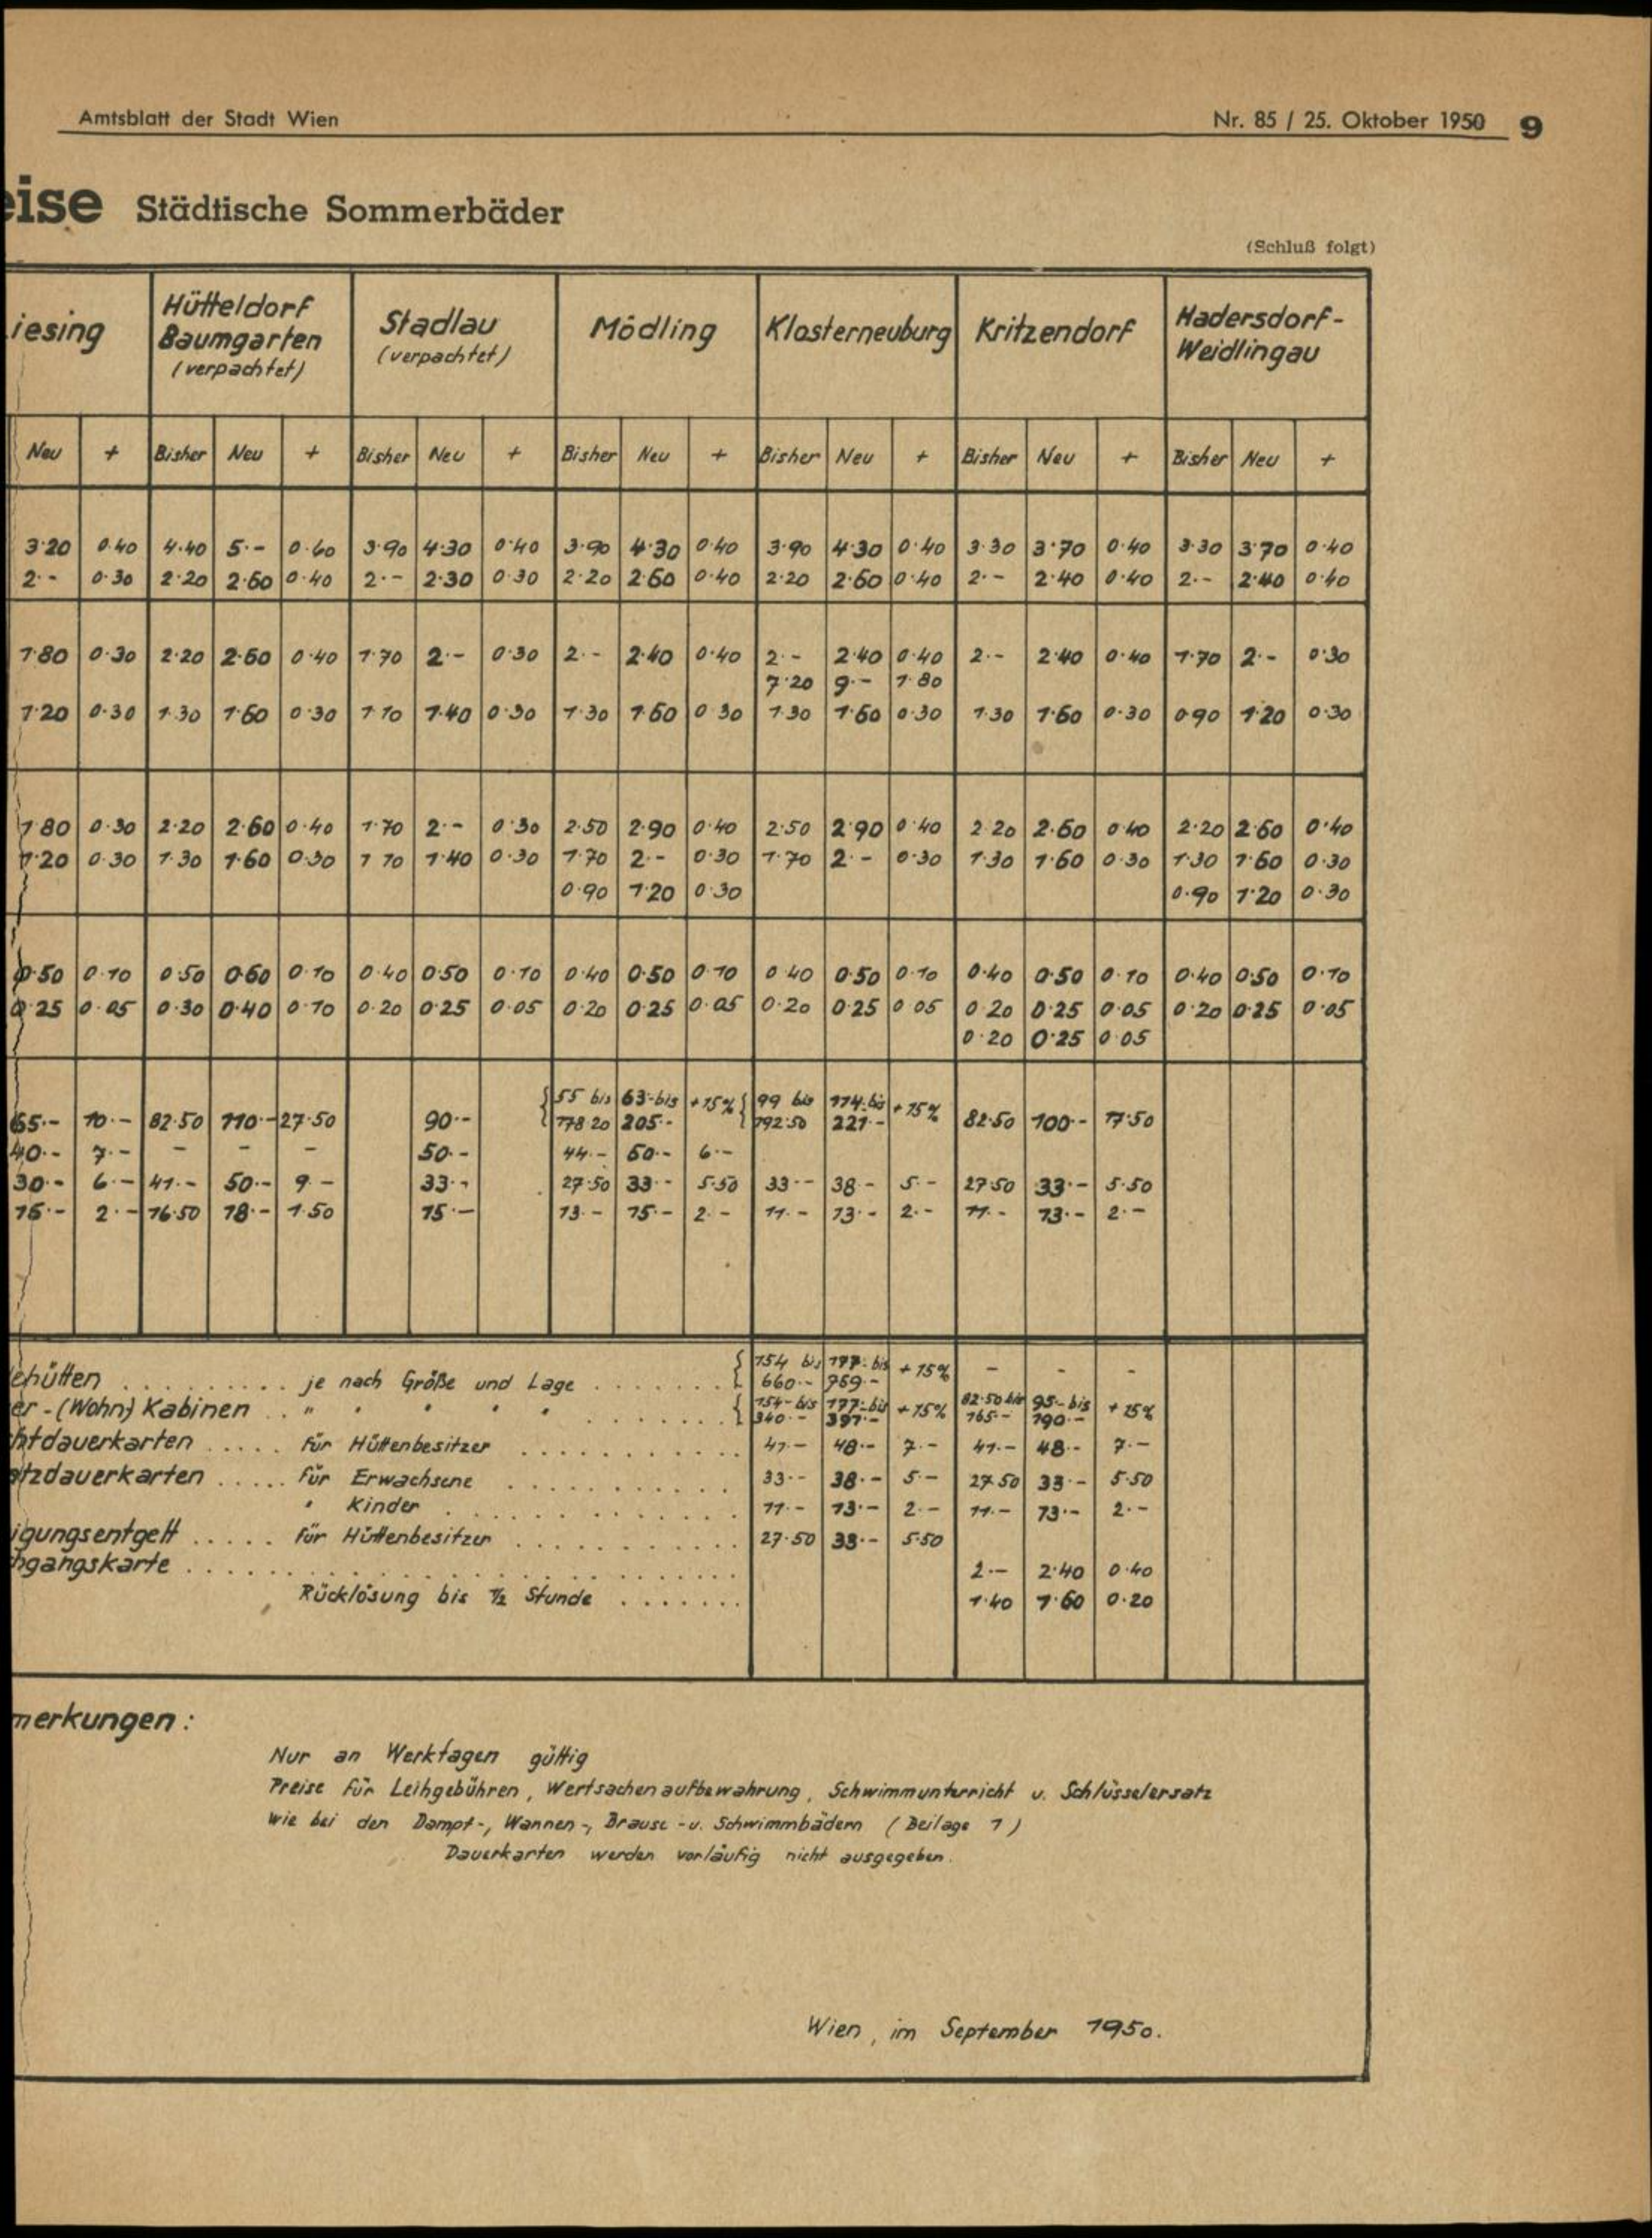 Amtsblatt der Stadt Wien Nr. 85 / 25. Oktober 1950 9
eise Städtische Sommerbäder
(Schluß folgt)
iesing Hütteldorf Baumgarten (verpachtet) Stadlau (verpachtet) Mödling Klosterneuburg Kritzendorf Hadersdorf-Weidlingau
Neu + Bisher Neu + Bisher Neu + Bisher Neu + Bisher Neu + Bisher Neu + Bisher Neu +
3·20 0·40 4·40 5·- 0·60 3·90 4·30 0·40 3·90 4·30 0·40 3·90 4·30 0·40 3·30 3·70 0·40 3·30 3·70 0·40
2·- 0·30 2·20 2·60 0·40 2·- 2·30 0·30 2·20 2·60 0·40 2·20 2·60 0·40 2·- 2·40 0·40 2·- 2·40 0·40
1·80 0·30 2·20 2·60 0·40 1·70 2·- 0·30 2·- 2·40 0·40 2·- 2·40 0·40 2·- 2·40 0·40 1·70 2·- 0·30
7·20 9·- 1·80
1·20 0·30 1·30 1·60 0·30 1·10 1·40 0·30 1·30 1·60 0·30 1·30 1·60 0·30 1·30 1·60 0·30 0·90 1·20 0·30
1·80 0·30 2·20 2·60 0·40 1·70 2·- 0·30 2·50 2·90 0·40 2·50 2·90 0·40 2·20 2·60 0·40 2·20 2·60 0·40
1·20 0·30 1·30 1·60 0·30 1·10 1·40 0·30 1·70 2·- 0·30 1·70 2·- 0·30 1·30 1·60 0·30 1·30 1·60 0·30
0·90 1·20 0·30 0·90 1·20 0·30
0·50 0·10 0·50 0·60 0·10 0·40 0·50 0·10 0·40 0·50 0·10 0·40 0·50 0·10 0·40 0·50 0·10 0·40 0·50 0·10
0·25 0·05 0·30 0·40 0·10 0·20 0·25 0·05 0·20 0·25 0·05 0·20 0·25 0·05 0·20 0·25 0·05 0·20 0·25 0·05
0·20 0·25 0·05
55 bis 63·-bis +15% 99 bis 114·-bis +15%
65·- 10·- 82·50 110·- 27·50 90·- 178·20 205·- 192·50 221·- 82·50 100·- 17·50
40·- 7·- - - - 50·- 44·- 50·- 6·-
30·- 6·- 41·- 50·- 9·- 33·- 27·50 33·- 5·50 33·- 38·- 5·- 27·50 33·- 5·50
15·- 2·- 16·50 18·- 1·50 15·- 13·- 15·- 2·- 11·- 13·- 2·- 11·- 13·- 2·-
154 bis 177·-bis +15% - - -
ehütten .......... je nach Größe und Lage ....... 660·- 759·-
er-(Wohn) Kabinen .. " " " " " ....... 154·-bis 177·-bis +15% 82·50 bis 95·-bis +15%
340·- 391·- 165·- 190·-
htdauerkarten ..... für Hüttenbesitzer ........... 41·- 48·- 7·- 41·- 48·- 7·-
tzdauerkarten ..... für Erwachsene ........... 33·- 38·- 5·- 27·50 33·- 5·50
" Kinder ............. 11·- 13·- 2·- 11·- 13·- 2·-
igungsentgelt ..... für Hüttenbesitzer ........... 27·50 33·- 5·50
hgangskarte .......................... 2·- 2·40 0·40
Rücklösung bis ½ Stunde ....... 1·40 1·60 0·20
merkungen:
Nur an Werktagen gültig
Preise für Leihgebühren, Wertsachenaufbewahrung, Schwimmunterricht u. Schlüsselersatz
wie bei den Dampf-, Wannen-, Brause-u. Schwimmbädern (Beilage 1)
Dauerkarten werden vorläufig nicht ausgegeben.
Wien, im September 1950.